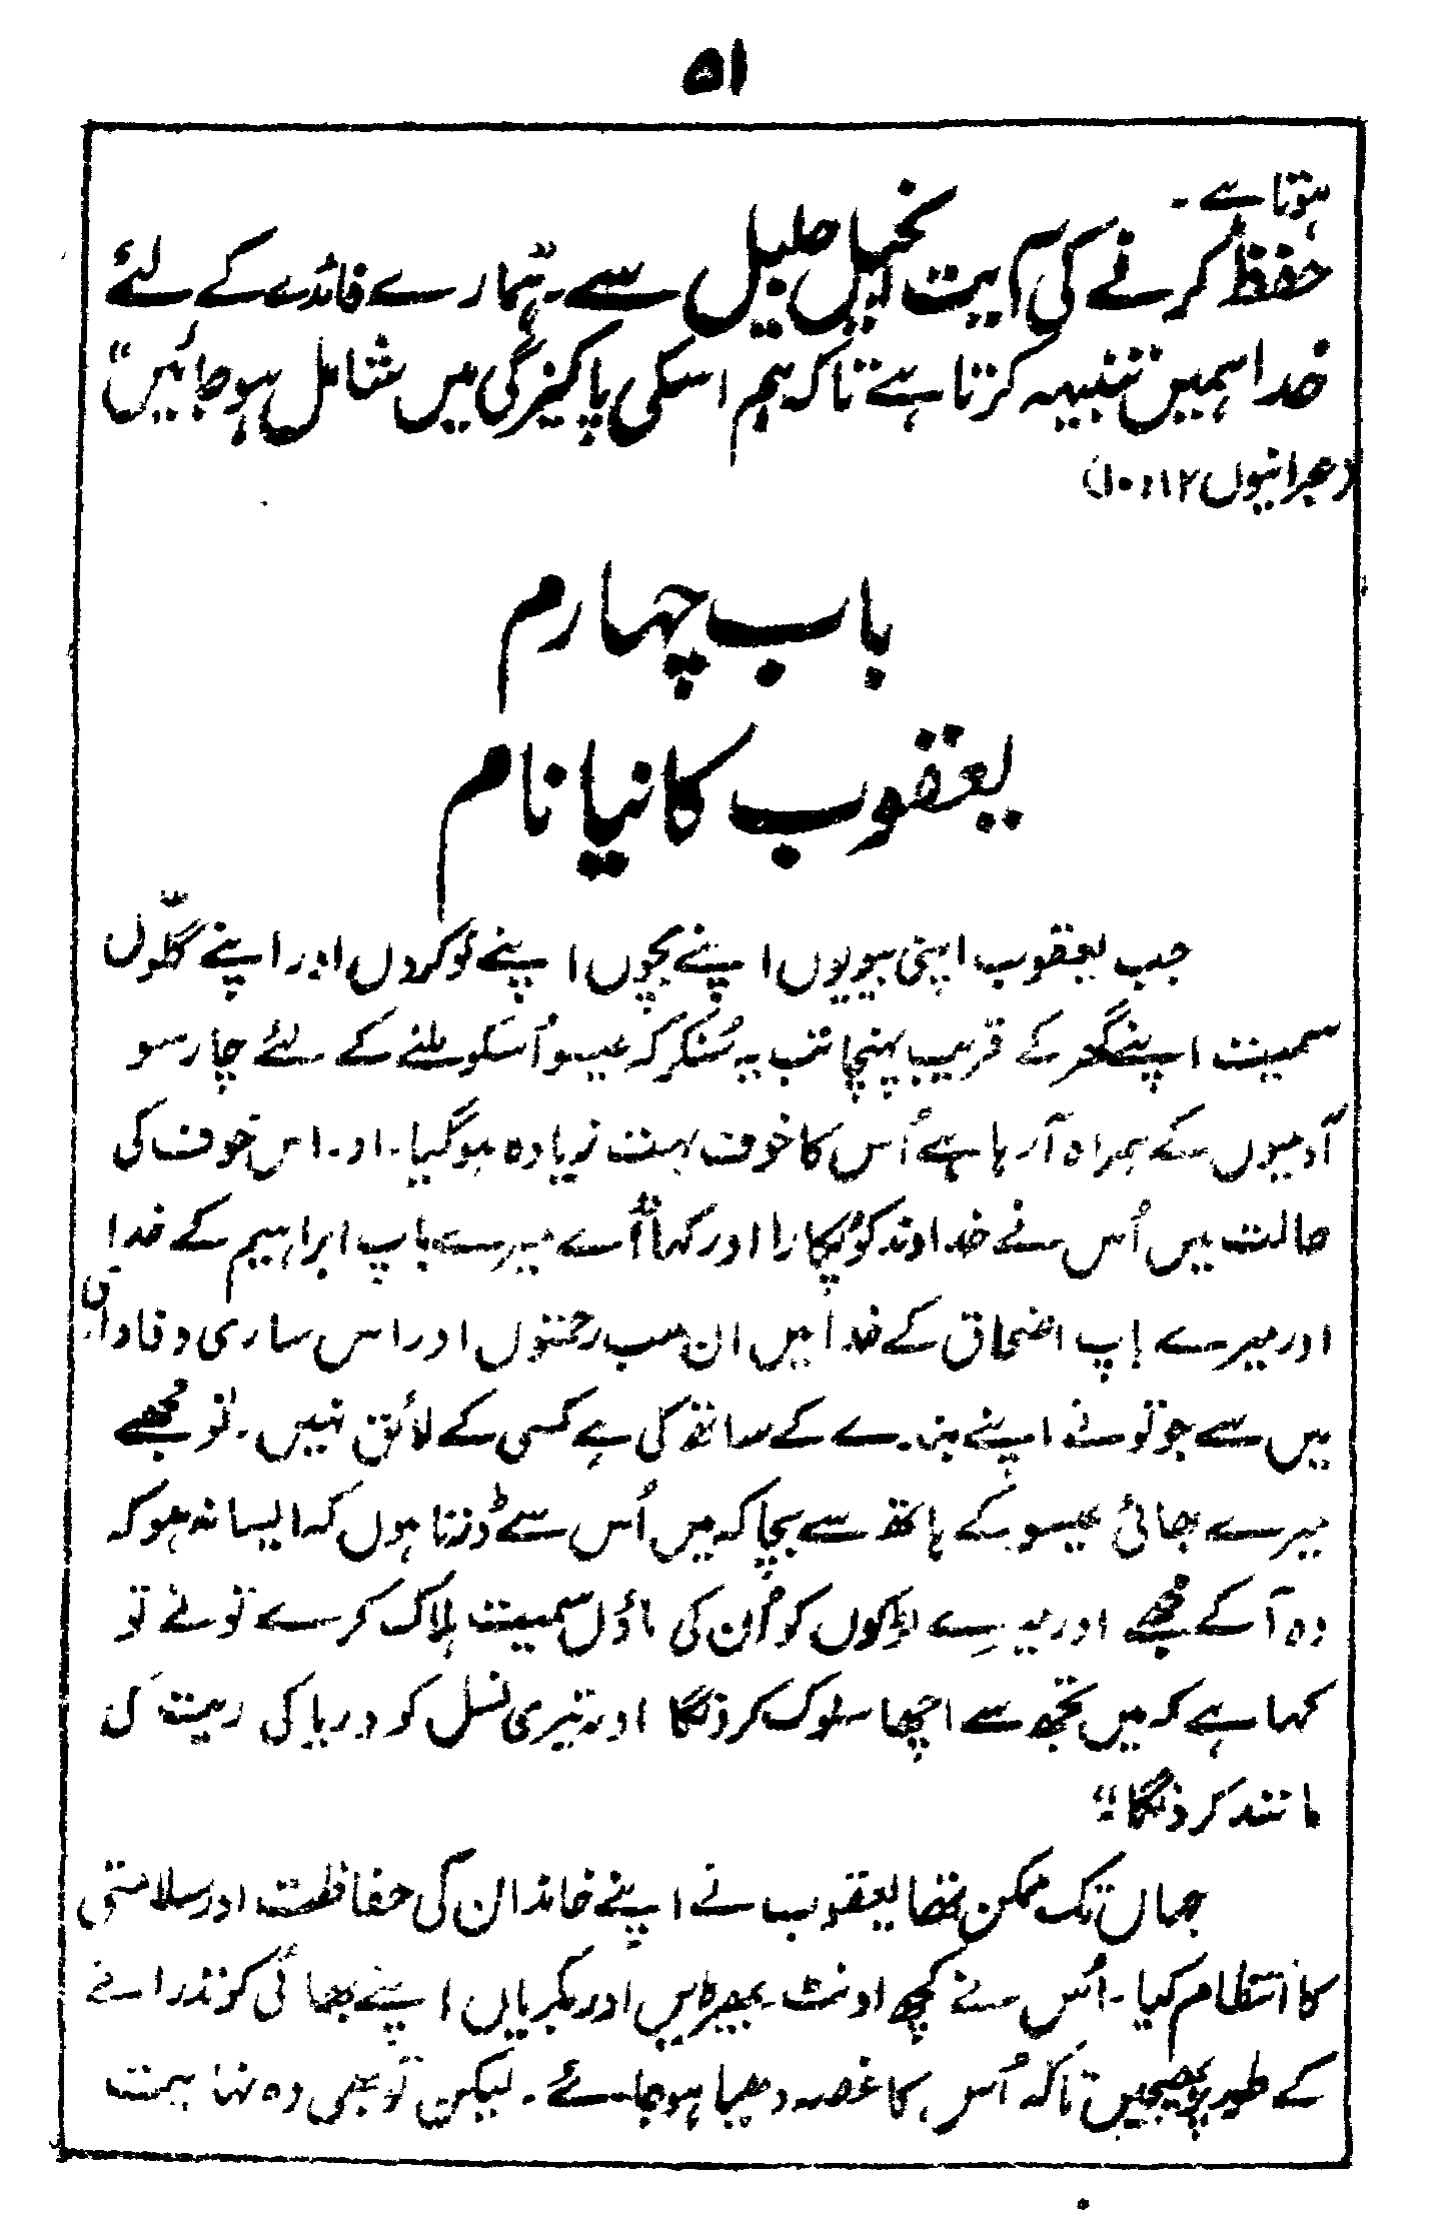 ۵۱
ہوتا ہے ۔
حفظ کرنے کی آیت انجیل جلیل سے ۔ "ہمارے فائدے کے لئے
خدا ہمیں تنبیہہ کرتا ہے تاکہ ہم اسکی پاکیزگی میں شامل ہو جائیں"
(عبرانیوں ۱۲: ۱۰)
باب چہارم
یعقوب کا نیا نام
جب یعقوب اپنی بیویوں اپنے بچوں اپنے نوکروں اور اپنے گلّوں
سمیت اپنے گھر کے قریب پہنچا تب یہ سُنکر کہ عیسو اُسکو ملنے کے لئے چار سو
آدمیوں کے ہمراہ آ رہا ہے اُس کا خوف بہت زیادہ ہو گیا ۔ اور اس خوف کی
حالت میں اُس نے خداوند کو پُکارا اور کہا "اے میرے باپ ابراہیم کے خدا
اور میرے باپ اضحاق کے خدا میں ان سب رحمتوں اور اس ساری وفاداری
میں سے جو تو نے اپنے بندے کے ساتھ کی ہے کسی کے لائق نہیں ۔ تو مُجھے
میرے بھائی عیسو کے ہاتھ سے بچا کہ میں اُس سے ڈرتا ہوں کہ ایسا نہ ہو کہ
وہ آ کے مُجھے اور میرے لڑکوں کو اُن کی ماؤں سمیت ہلاک کرے تو نے تو
کہا ہے کہ میں تجھ سے اچھا سلوک کرونگا اور تیری نسل کو دریا کی ریت کی
مانند کرونگا"
جہاں تک ممکن تھا یعقوب نے اپنے خاندان کی حفاظت اور سلامتی
کا انتظام کیا ۔ اُس نے کچھ اونٹ بھیڑیں اور بکریاں اپنے بھائی کو نذرانے
کے طور پر بھیجیں تاکہ اُس کا غصہ دھیما ہو جائے ۔ لیکن تو بھی وہ نہایت